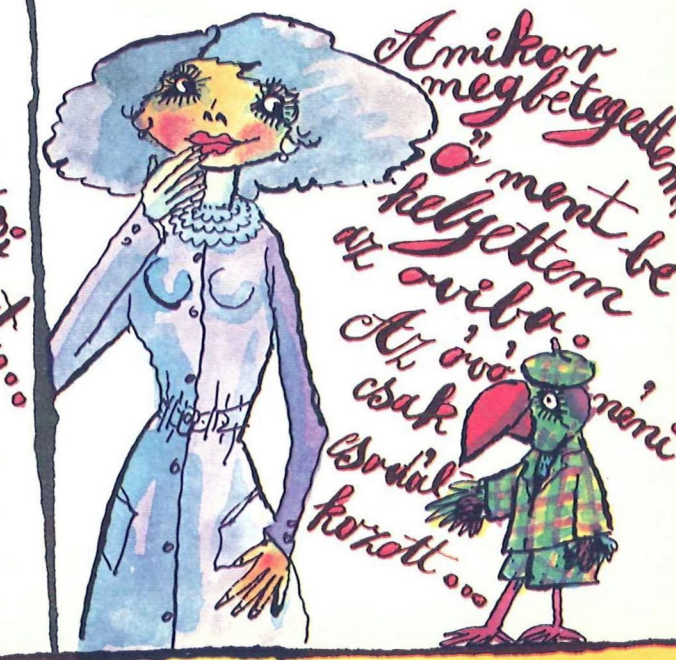 Amikor
megbetegedtem,
ő ment be
helyettem
az oviba.
Az óvó néni
csak
csodál-
kozott...